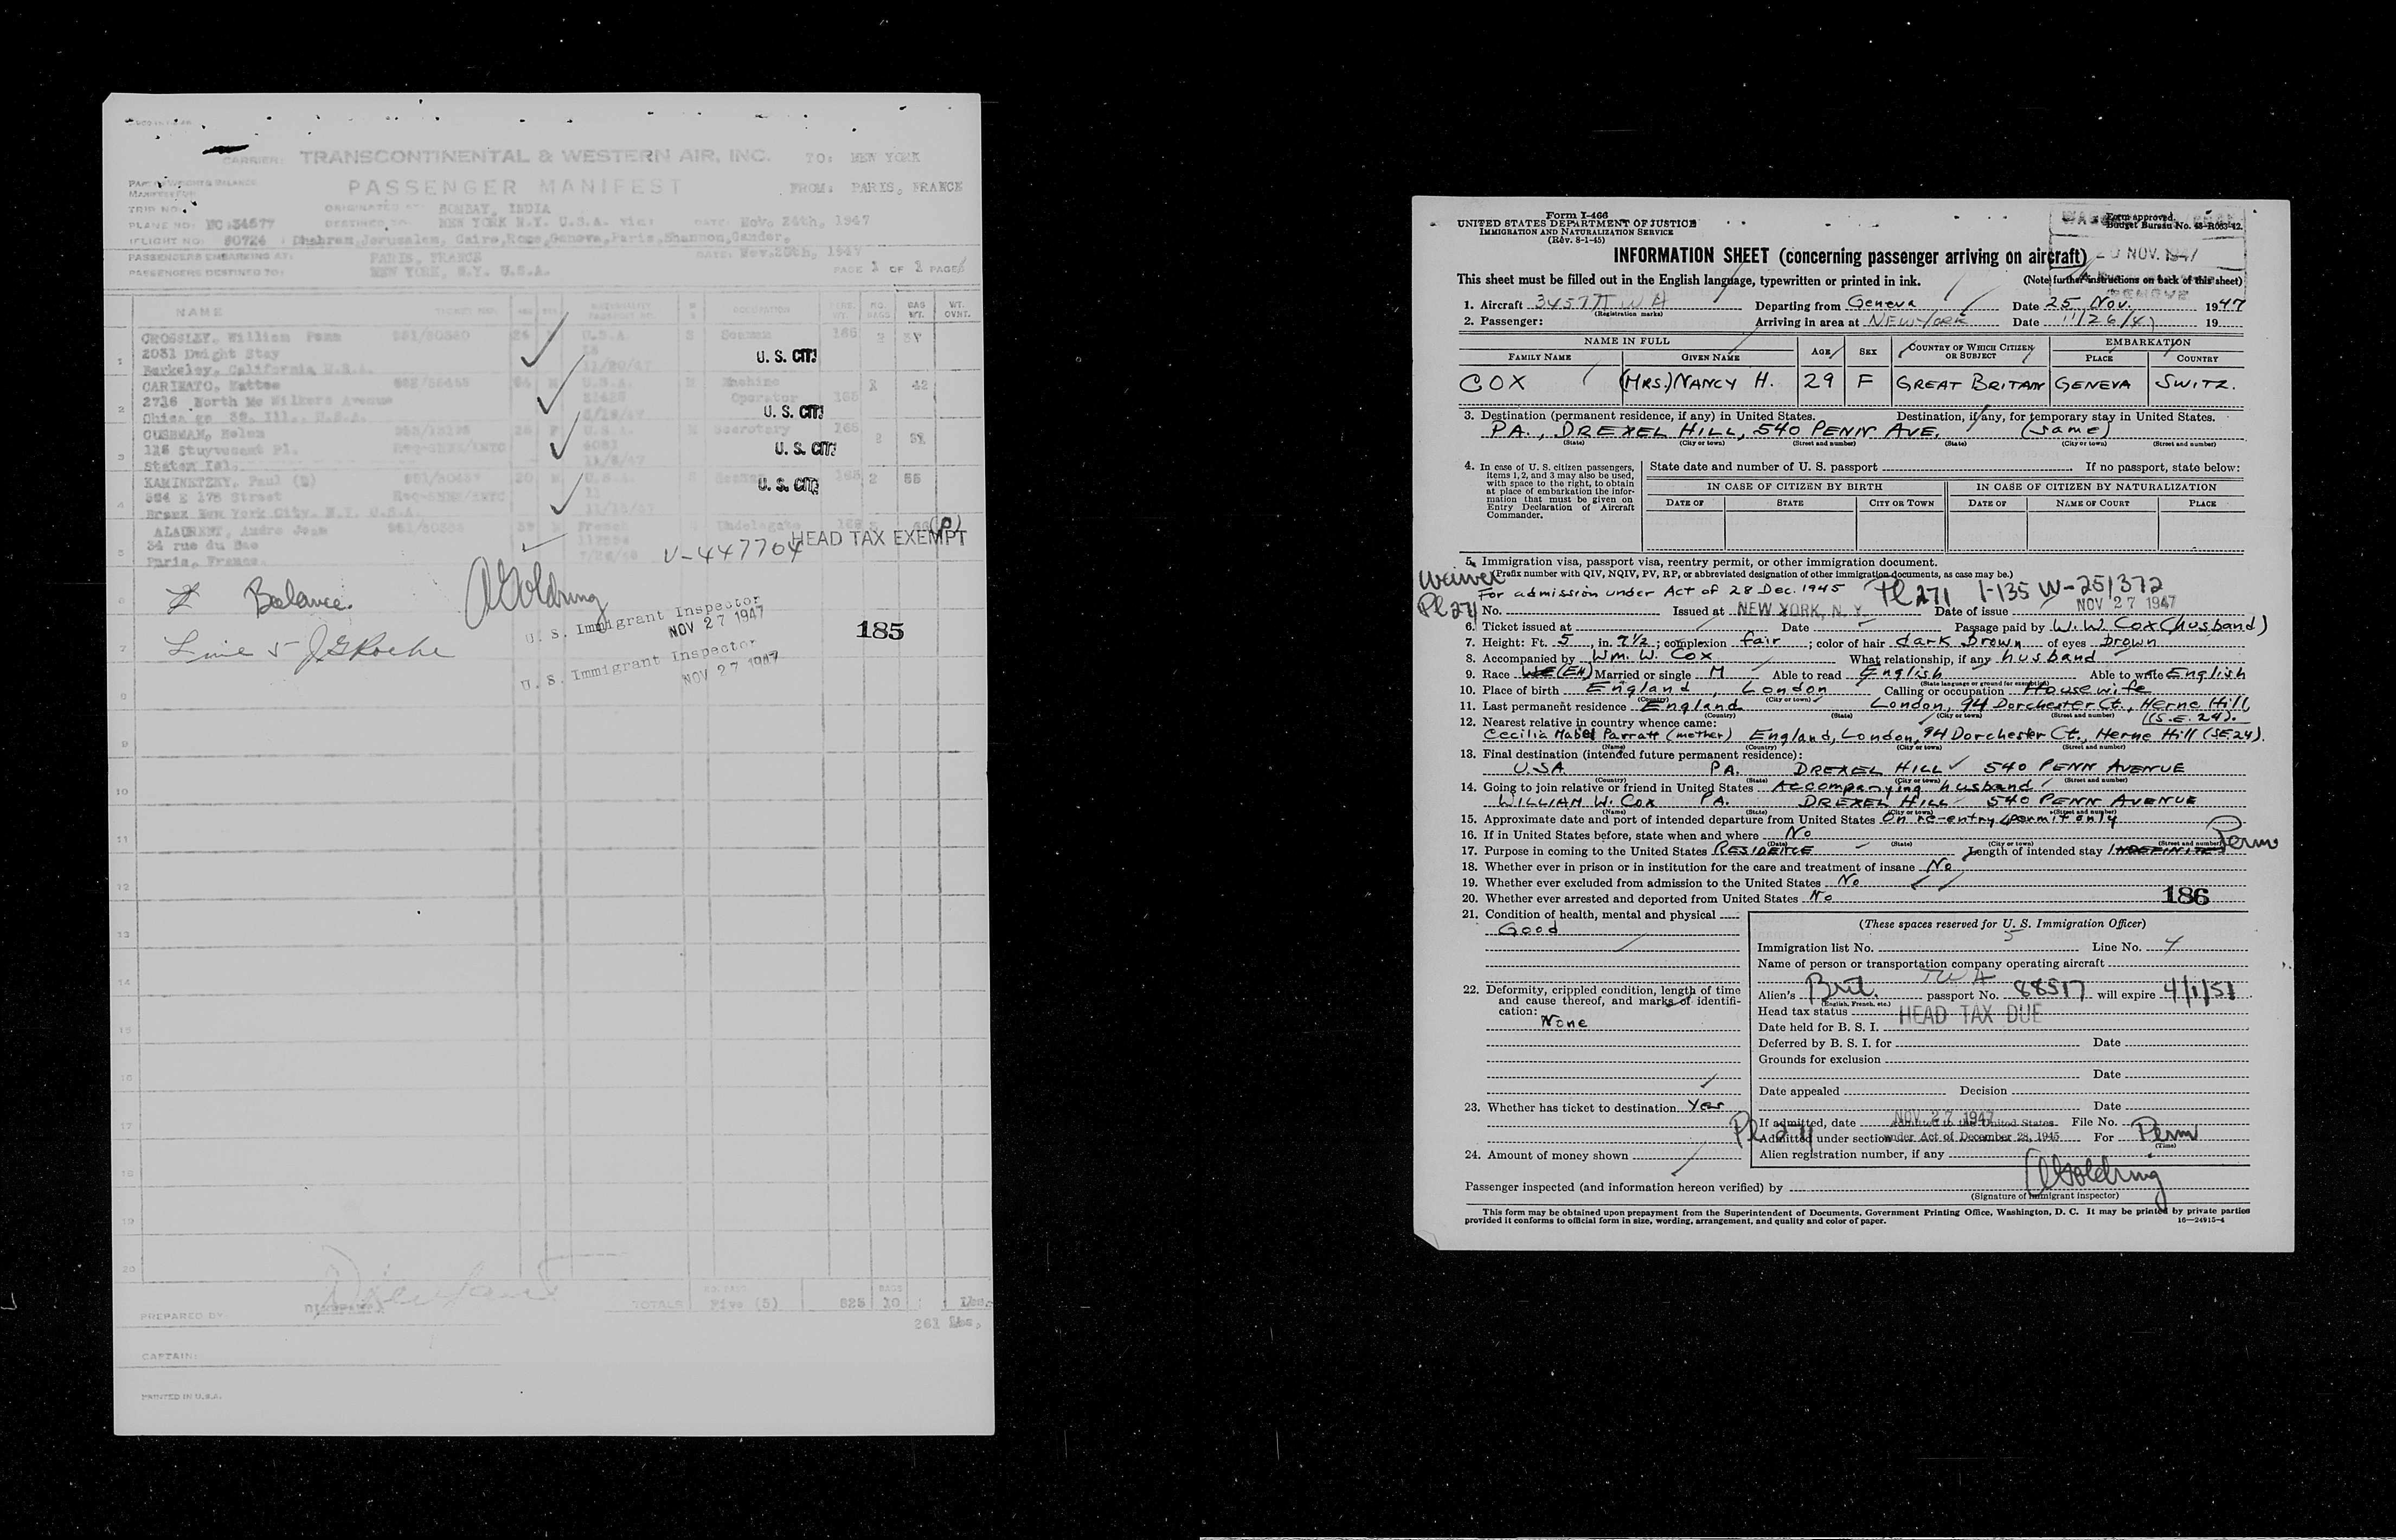 CARRIER: TRANSCONTINENTAL & WESTERN AIR, INC. TO: NEW YORK
PASSENGER MANIFEST FROM: PARIS, FRANCE
TRIP NO.
ORIGINATED AT BOMBAY, INDIA
PLANE NO: NC 34577 DESTINED TO NEW YORK N.Y. U.S.A. via: DATE: Nov. 24th, 1947
FLIGHT NO: 90724 Dhahran, Jerusalem, Cairo, Rome, Geneva, Paris, Shannon, Gander.
PASSENGERS EMBARKING AT: PARIS, FRANCE DATE: Nov. 25th, 1947
PASSENGERS DESTINED TO: NEW YORK, N.Y. U.S.A. PAGE 1 OF PAGES
NAME OCCUPATION NO. BAGS BAG WT. WT. OVNT.
1 CROSSLEY, William Penn U.S.A. Seaman 165 2
2031 Dwight Stay U. S. CIT.
Berkeley, California U.S.A. 11/20/47
2 M U.S.A. Machine 42
2716 North Mc Wilkers Avenue Operator 165
Chicago 32, Ill., U.S.A. U. S. CIT.
3 CUSHMAN, Helen U.S.A. Secretary 165 2
Stuyvesant Pl. U. S. CIT.
Staten Isl.
4 KAMINETZKY, Paul U.S.A. Seaman 165 2 55
E 178 Street U. S. CIT.
Bronx New York City. N.Y. U.S.A.
5 Andre Jean French 165 (P)
34 rue du Bac V-447704 HEAD TAX EXEMPT
Paris, France
6 Balance. A Goldring
U. S. Immigrant Inspector
NOV 27 1947
185
7 Line 5 J G Roche
U. S. Immigrant Inspector
NOV 27 1947
8
9
10
11
12
13
14
15
16
17
18
19
20
TOTALS Five (5) 825 10 Lbs.
PREPARED BY: 261 Lbs.
CAPTAIN:
PRINTED IN U.S.A.
Form I-466
UNITED STATES DEPARTMENT OF JUSTICE
IMMIGRATION AND NATURALIZATION SERVICE
(Rev. 8-1-45)
Form approved.
Budget Bureau No. 43-R083-42.
INFORMATION SHEET (concerning passenger arriving on aircraft) NOV. 1947
This sheet must be filled out in the English language, typewritten or printed in ink. (Note further instructions on back of this sheet)
1. Aircraft 34577 TWA Departing from Geneva Date 25 Nov. 1947
(Registration marks)
2. Passenger: Arriving in area at NEW YORK Date 11/26/47 19
NAME IN FULL AGE SEX COUNTRY OF WHICH CITIZEN OR SUBJECT EMBARKATION
FAMILY NAME GIVEN NAME PLACE COUNTRY
COX (MRS.) NANCY H. 29 F GREAT BRITAIN GENEVA SWITZ.
3. Destination (permanent residence, if any) in United States. Destination, if any, for temporary stay in United States.
PA., DREXEL HILL, 540 PENN AVE. (same)
(State) (City or town) (Street and number) (State) (City or town) (Street and number)
4. In case of U. S. citizen passengers, items 1, 2, and 3 may also be used, with space to the right, to obtain at place of embarkation the information that must be given on Entry Declaration of Aircraft Commander.
State date and number of U. S. passport If no passport, state below:
IN CASE OF CITIZEN BY BIRTH IN CASE OF CITIZEN BY NATURALIZATION
DATE OF STATE CITY OR TOWN DATE OF NAME OF COURT PLACE
5. Immigration visa, passport visa, reentry permit, or other immigration document.
Waiver (Prefix number with QIV, NQIV, PV, RP, or abbreviated designation of other immigration documents, as case may be.)
For admission under Act of 28 Dec. 1945 Pl 271 I-135 W-251372
Pl 271 No. Issued at NEW YORK, N. Y. Date of issue NOV 27 1947
6. Ticket issued at Date Passage paid by W. W. Cox (husband)
7. Height: Ft. 5, in. 7 1/2; complexion fair; color of hair dark brown of eyes brown
8. Accompanied by Wm. W. Cox What relationship, if any husband
9. Race (EN) Married or single M Able to read English Able to write English
(State language or ground for exemption)
10. Place of birth England, London Calling or occupation Housewife
(Country) (City or town)
11. Last permanent residence England London, 94 Dorchester Ct., Herne Hill, (S.E. 24).
(Country) (State) (City or town) (Street and number)
12. Nearest relative in country whence came:
Cecilia Mabel Parratt (mother) England, London, 94 Dorchester Ct., Herne Hill (SE 24).
(Name) (Country) (City or town) (Street and number)
13. Final destination (intended future permanent residence):
U.S.A. PA. DREXEL HILL 540 PENN AVENUE
(Country) (State) (City or town) (Street and number)
14. Going to join relative or friend in United States Accompanying husband
WILLIAM W. COX PA. DREXEL HILL 540 PENN AVENUE
(Name) (State) (City or town) (Street and number)
15. Approximate date and port of intended departure from United States On re-entry permit only
16. If in United States before, state when and where No
(Date) (State) (City or town) (Street and number)
17. Purpose in coming to the United States RESIDENCE Length of intended stay INDEFINITE Perm
18. Whether ever in prison or in institution for the care and treatment of insane No
19. Whether ever excluded from admission to the United States No
20. Whether ever arrested and deported from United States No
186
21. Condition of health, mental and physical
Good
22. Deformity, crippled condition, length of time and cause thereof, and marks of identification:
None
23. Whether has ticket to destination Yes
24. Amount of money shown
(These spaces reserved for U. S. Immigration Officer)
Immigration list No. 5 Line No. 4
Name of person or transportation company operating aircraft
TWA
Alien's Brit. passport No. 88517 will expire 4/1/51
(English, French, etc.)
Head tax status HEAD TAX DUE
Date held for B. S. I.
Deferred by B. S. I. for Date
Grounds for exclusion
Date
Date appealed Decision
Date
If admitted, date NOV 27 1947 Admitted to the United States File No.
Pl 271 Admitted under section under Act of December 28, 1945 For Perm
(Time)
Alien registration number, if any
Passenger inspected (and information hereon verified) by A Goldring
(Signature of immigrant inspector)
This form may be obtained upon prepayment from the Superintendent of Documents, Government Printing Office, Washington, D. C. It may be printed by private parties
provided it conforms to official form in size, wording, arrangement, and quality and color of paper. 16—24915-4